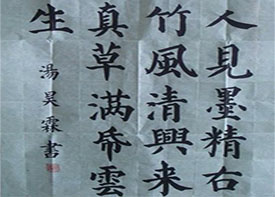 人見墨精右
竹風清興来
真草满帋雲
生
湯昊霖書